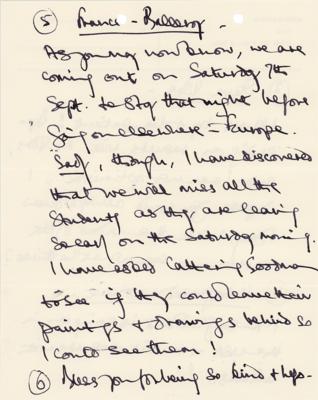 (5) France - Balleroy.
As you may now know, we are
coming out on Saturday 7th
Sept. to stay that night before
going on elsewhere in Europe.
Sadly, though, I have discovered
that we will miss all the
students as they are leaving
so early on the Saturday morning.
I have asked Catherine Goodman
to see if they could leave their
paintings & drawings behind so
I can see them!
(6) Bless you for being so kind &